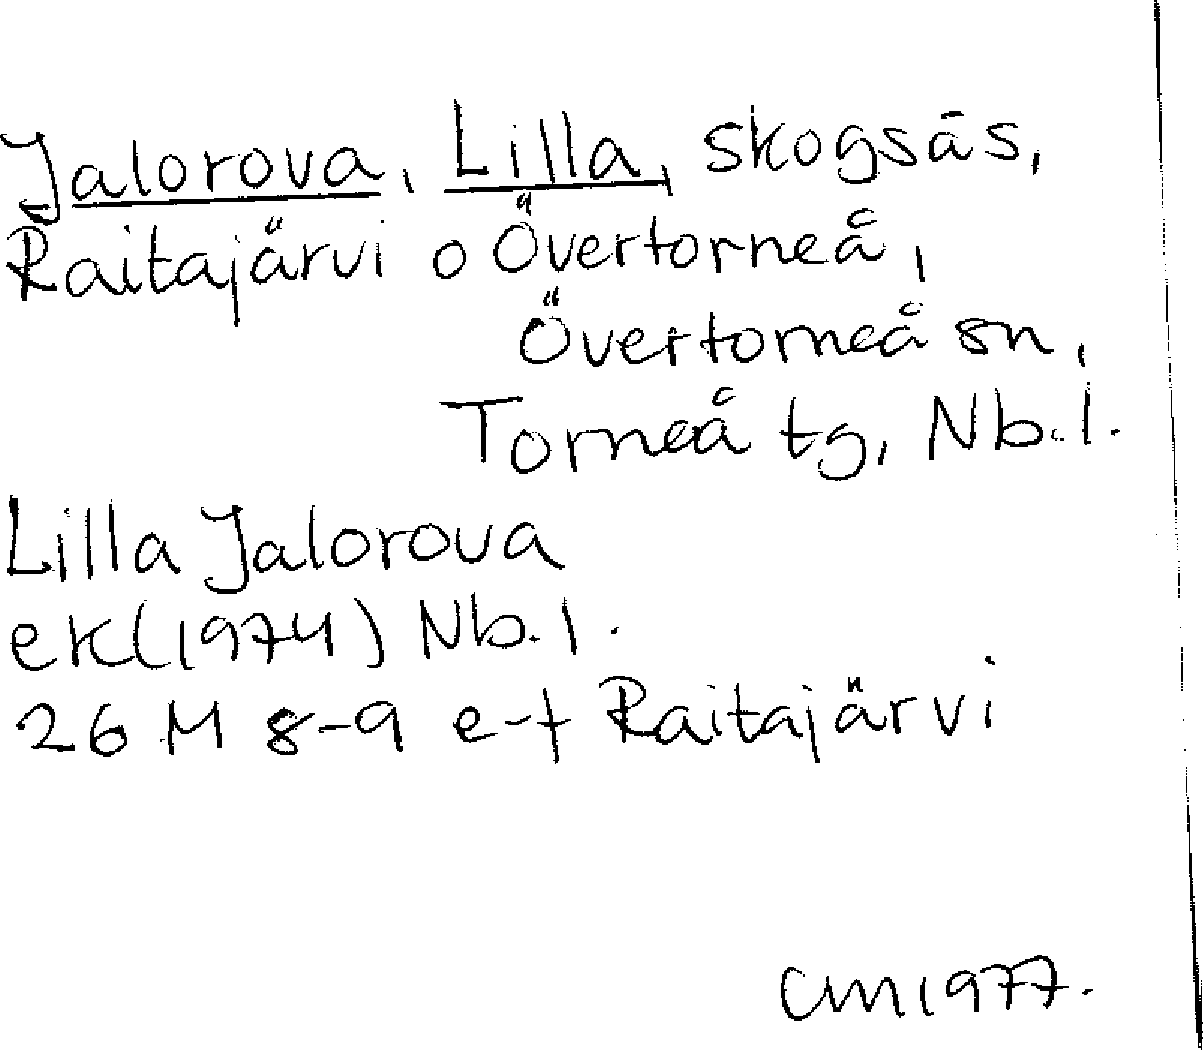 Jalorova, Lilla, skogsås,
Raitajärvi o Övertorneå,
Övertorneå sn,
Torneå tg, Nb.l.
Lilla Jalorova
ek (1974) Nb.l.
26 M 8-9 e-f Raitajärvi
CM 1977.